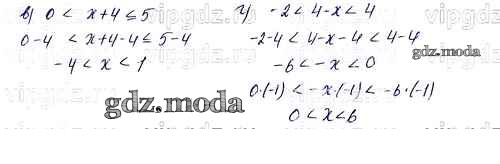 в) 0 < x+4 ≤ 5
0-4 < x+4-4 ≤ 5-4
-4 < x < 1
г) -2 < 4-x < 4
-2-4 < 4-x-4 < 4-4
-6 < -x < 0
0·(-1) < -x·(-1) < -6·(-1)
0 < x < 6
gdz.moda
gdz.moda
vipgdz.com